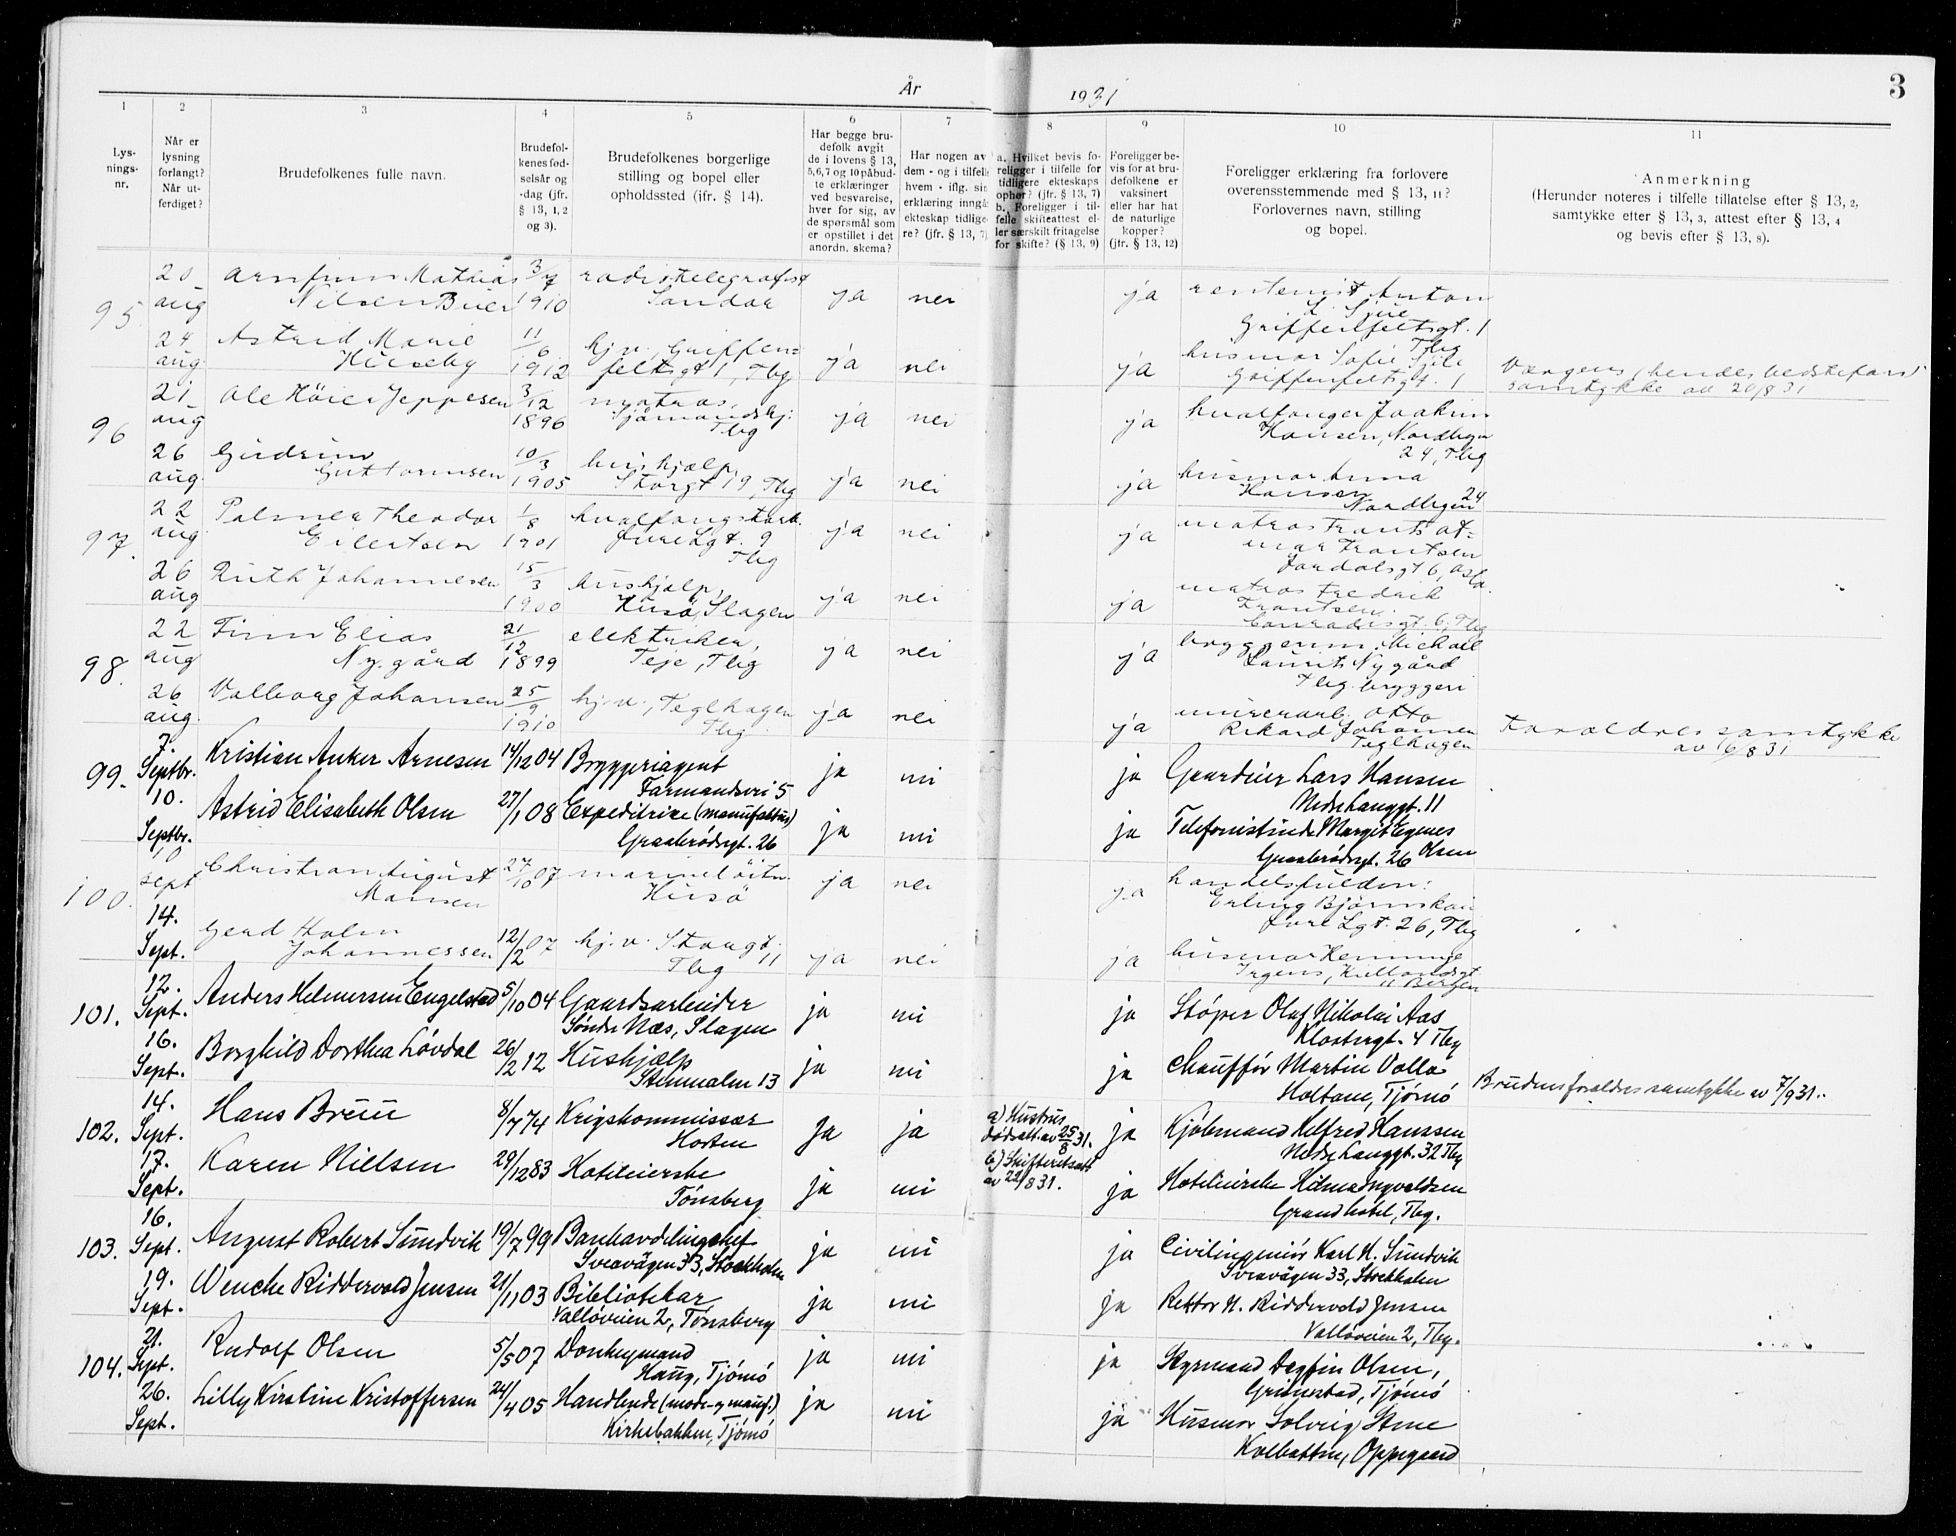 År 1931
3
1 2 3 4 5 6 7 8 9 10 11
Lys-
nings-
nr.
Når er
lysning
forlangt?
Når ut-
ferdiget?
Brudefolkenes fulle navn.
Brudefol-
kenes fød-
selsår og
-dag (jfr.
§ 13, 1, 2
og 3).
Brudefolkenes borgerlige
stilling og bopel eller
opholdssted (jfr. § 14).
Har begge bru-
defolk avgit
de i lovens § 13,
5,6,7 og 10 påbud-
te erklæringer
ved besvarelse,
hver for sig, av
de spørsmål som
er opstillet i det
anordn. skema?
Har nogen av
dem - og i tilfelle
hvem - iflg. sin
erklæring inngå
ekteskap tidlige-
re? (jfr. § 13, 7)
a. Hvilket bevis fo-
religger i tilfelle for
tidligere ekteskaps
ophør? (jfr. § 13, 7)
b. Foreligger i til-
felle skifteattest el-
ler særskilt fritagelse
for skifte? (§ 13, 9)
Foreligger be-
vis for at bru-
defolkene er
vaksinert
eller har hat
de naturlige
kopper?
(jfr. § 13, 12)
Foreligger erklæring fra forlovere
overensstemmende med § 13, 11?
Forlovernes navn, stilling
og bopel.
Anmerkning
(Herunder noteres i tilfelle tillatelse efter § 13, 2,
samtykke efter § 13, 3, attest efter § 13, 4
og bevis efter § 13, 8).
95. 20 aug Arnfinn Mathias 3/7 radiotelegrafist
Nilsen Buer 1910 Sandar ja nei ja rentenist Anton
Griffenfeltsgt. 1
Tbg
24 aug. Astrid Marie 11/6 hj.v., Griffen=
Huseby 1912 feltsgt 1, Tbg ja nei ja husmor Sofie
Griffenfeltsgt. 1
Vergens, hendes bedstefars
samtykke av 20/8 31
96 21 aug Ole Höier Jeppesen 3/12 1896 matros,
Sjömandshj.
Tbg ja nei ja hvalfanger Joakim
Hansen, Nordbyen
24, Tbg
26 aug. Gudrun 10/3 hushjælp,
Guttormsen 1905 Storgt 19, Tbg ja nei ja husmor Anna
Hansen 24
Nordbyen
97. 22 aug Palmer Theodor 1/8 hvalfangstarb.
Eilertsen 1901 9
Tbg ja nei ja matros
6, Oslo.
26 aug Ruth Johannesen 15/3 1900 hushjælp,
Husö, Slagen ja nei ja matros Fredrik
Frantsen
Conradisgt. 6, Tbg
98. 22 aug Finn Elias 21/12 elektriker,
Nygård 1899 Teje, Tbg ja nei ja Michael
Laurits Nygård
Tbg. bryggeri
26 aug. Valborg Johansen 25/9 1910 hj.v., Teglhagen
Tbg ja nei ja murerarb. Otto
Rikard Johansen
Teglhagen
Foreldres samtykke
av 16/8 31
99. 7. Septbr. Kristian Anker Arnesen 14/12 04 Bryggeriagent
Farmandsvei 5 ja nei ja Gaardeier Lars Hansen
Nedre Langgt. 11
10. Septbr. Astrid Elisabeth Olsen 27/1 08 Expeditrice (manufaktur)
Graabrødregt. 26 ja nei ja Telefonistinde Margit Egenes
Olsen
Graabrødregt. 26
100. 10 sept Christian August 27/10 07
Mansen Husö ja nei ja
Erling Björnskau
26, Tbg
14. Sept. Gerd Holm
Johannessen 12/2 07 hj.v. Storgt.
11
Tbg ja nei ja husmor Hemming
Irgens, Kiellandsgt
11 Bergen
101. 12. Sept. Anders Helmersen Engelstad 5/10 04 Gaardsarbeider
Søndre Næs, Slagen ja nei ja Støper Olaf Nikolai Aas
Klostergt. 4 Tbg
16. Sept. Borghild Dorthea Løvdal 26/2 12 Hushjælp
Stenmalen 13 ja nei ja Chauffør Martin Valle
Holtane, Tjømø
Brudens foreldres samtykke av 7/9 31.
102. 14. Sept. Hans Bruu 8/7 74 Krigskommissær
Horten Ja ja a) Hustrus
dødsatt. av 25/8 31.
b) Skifteretsatt
av 22/8 31. ja Kjøbmand Helfred Hanssen
Nedre Langgt. 32 Tbg
17. Sept. Karen Nielsen 29/12 83 Hoteleierske
Tønsberg ja nei ja Hoteleierske Hilma Ingvaldsen
Grand hotel, Tbg.
103. 16. Sept. August Robert Sundvik 19/7 99 Bankavdelingschef
Sveavägen 33, Stockholm ja nei ja Civilingeniør Karl H. Sundvik
Sveavägen 33, Stockholm
19. Sept. Wenche Riddervold Jensen 21/11 03 Bibliotekar
Valløveien 2, Tønsberg ja nei ja Rektor N. Riddervold Jensen
Valløveien 2, Tbg.
104. 21. Sept. Rudolf Olsen 5/5 07 Donkeymand
Haug, Tjømø ja nei ja Styrmand Dagfin Olsen,
Grimestad, Tjømø
26. Sept. Lilly Kirstine Kristoffersen 24/4 05 Handlende (mode- og manuf.)
Kirkebakken, Tjømø ja nei ja Husmor Solveig Stene
Kolbotten, Oppegaard